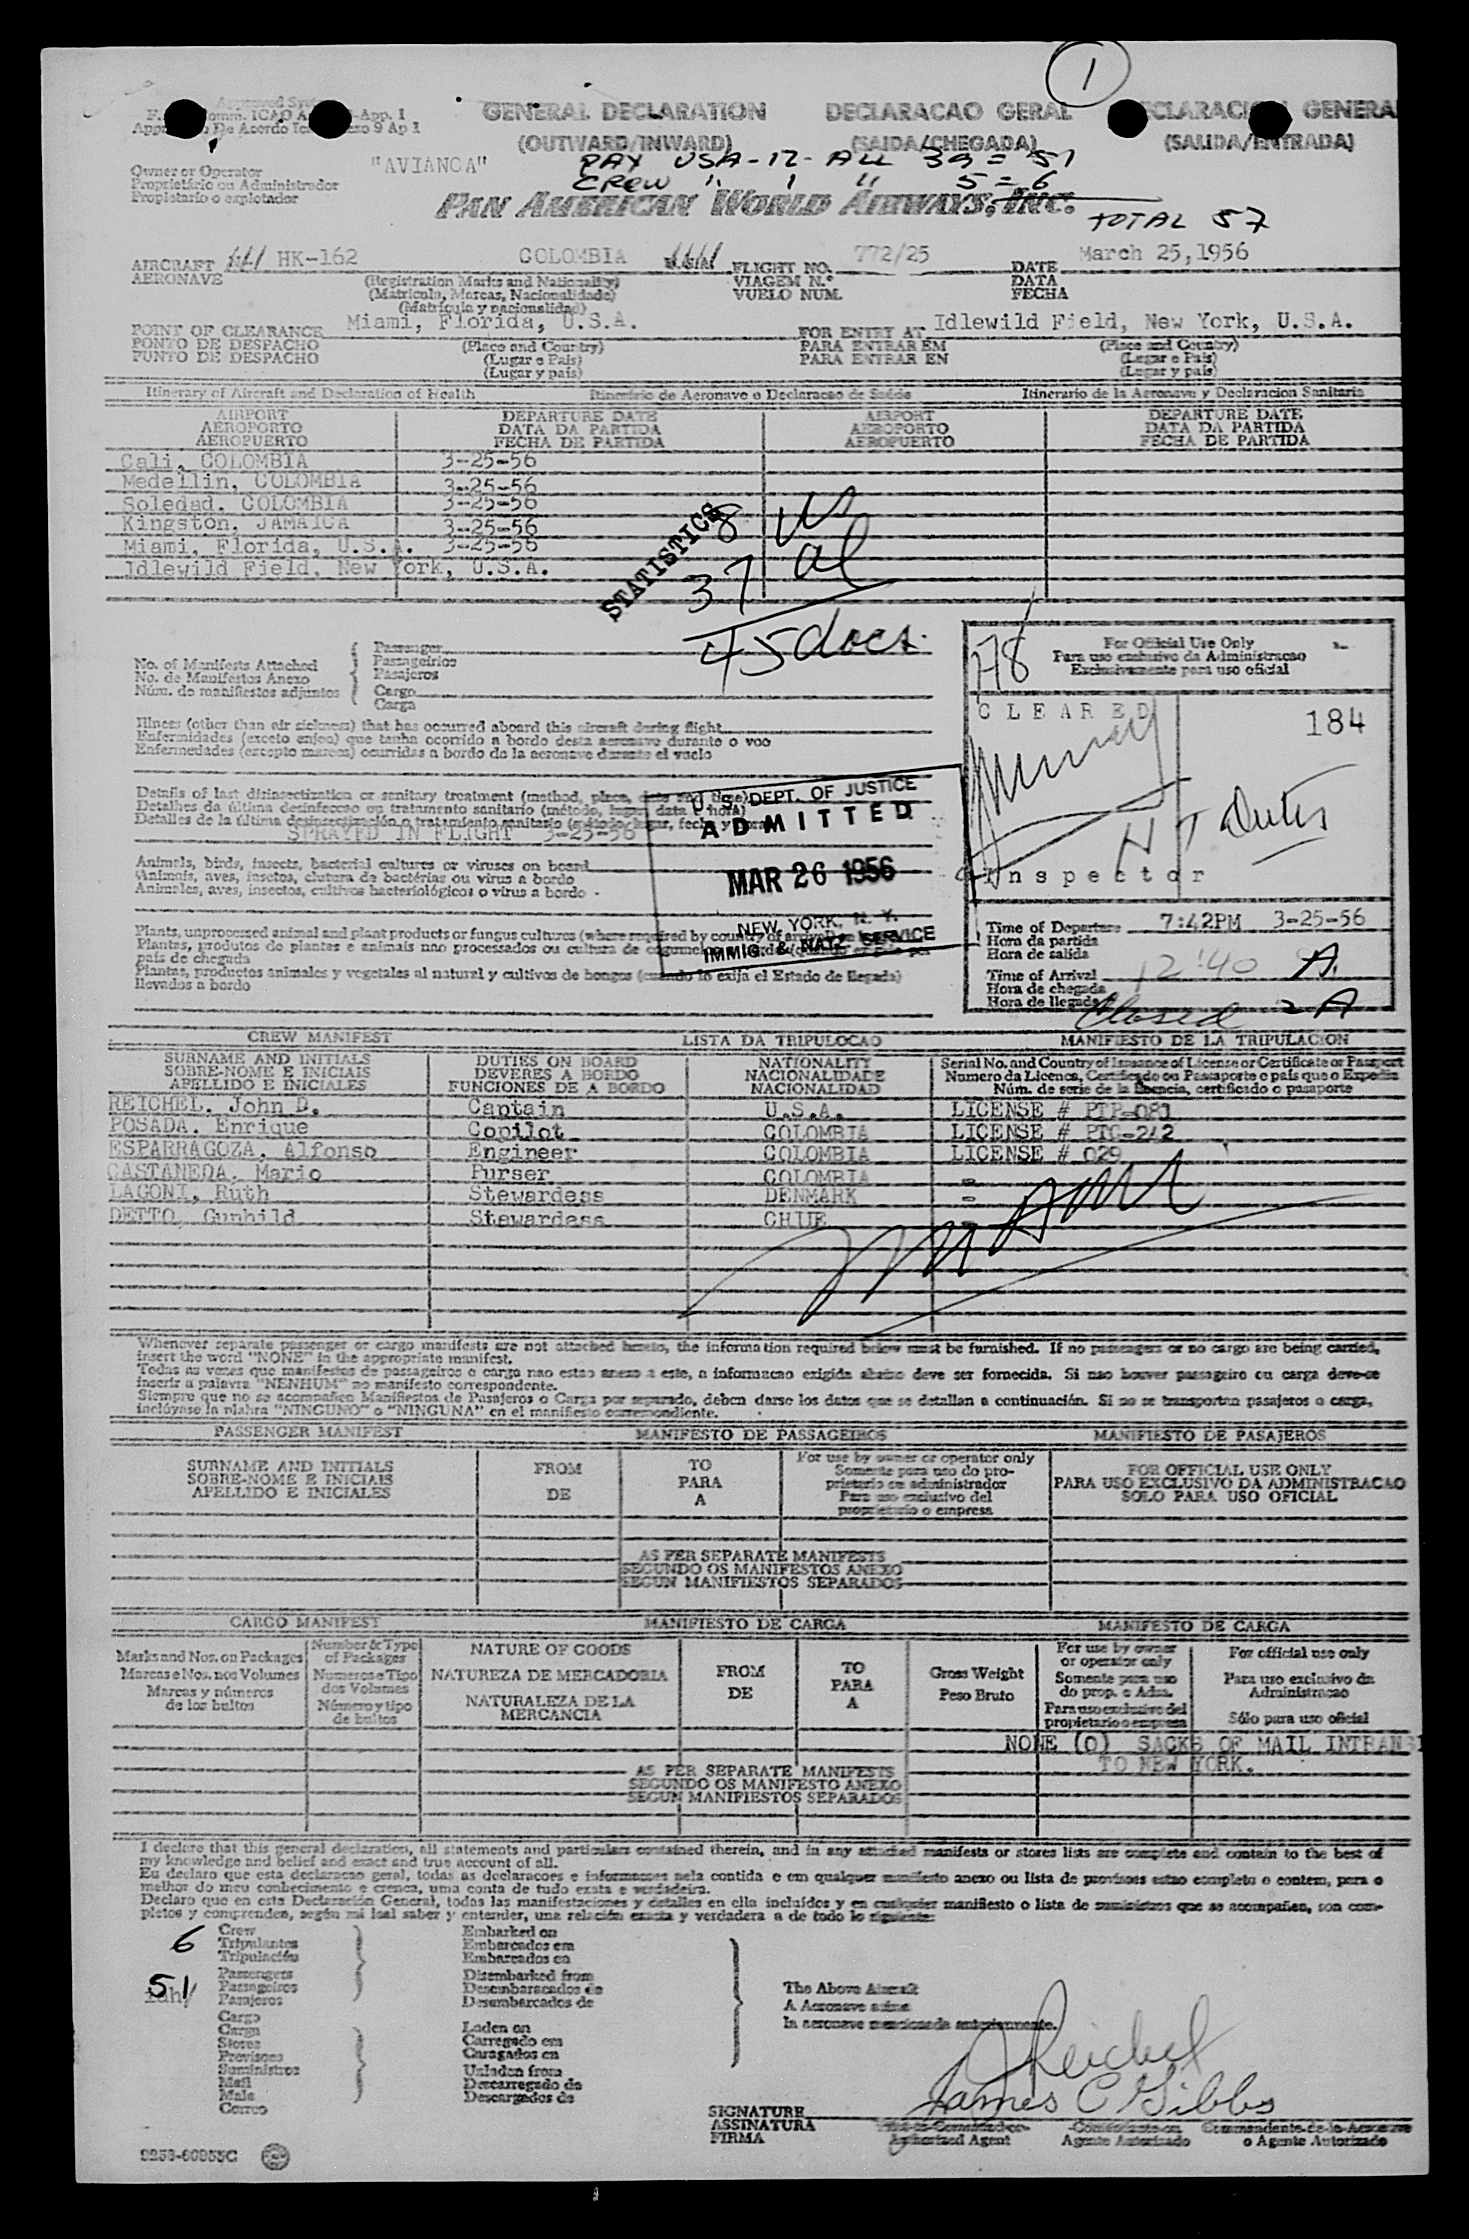 1
GENERAL DECLARATION DECLARACAO GERAL DECLARACION GENERAL
(OUTWARD/INWARD) (SAIDA/CHEGADA) (SALIDA/ENTRADA)
PAX USA-12- ALL 39 = 51
CREW " 1 " 5 = 6
TOTAL 57
Owner or Operator "AVIANCA"
Proprietário ou Administrador
Propietario o explotador
PAN AMERICAN WORLD AIRWAYS, INC.
AIRCRAFT HK-162 COLOMBIA FLIGHT NO. 772/25 DATE March 25, 1956
AERONAVE (Registration Marks and Nationality) VIAGEM N.º DATA
(Matricula, Marcas, Nacionalidade) VUELO NUM. FECHA
(Matrícula y nacionalidad)
POINT OF CLEARANCE Miami, Florida, U.S.A. FOR ENTRY AT Idlewild Field, New York, U.S.A.
PONTO DE DESPACHO (Place and Country) PARA ENTRAR EM (Place and Country)
PUNTO DE DESPACHO (Lugar e País) PARA ENTRAR EN (Lugar e País)
(Lugar y país) (Lugar y país)
Itinerary of Aircraft and Declaration of Health Itinerário de Aeronave e Declaracao de Saúde Itinerario de la Aeronave y Declaracion Sanitaria
AIRPORT DEPARTURE DATE AIRPORT DEPARTURE DATE
AEROPORTO DATA DA PARTIDA AEROPORTO DATA DA PARTIDA
AEROPUERTO FECHA DE PARTIDA AEROPUERTO FECHA DE PARTIDA
Cali, COLOMBIA 3-25-56
Medellin, COLOMBIA 3-25-56
Soledad, COLOMBIA 3-25-56
Kingston, JAMAICA 3-25-56
Miami, Florida, U.S.A. 3-25-56
Idlewild Field, New York, U.S.A.
STATISTICS
8 US
37 al
45 docs.
No. of Manifests Attached
No. de Manifestos Anexo
Núm. de manifiestos adjuntos
Passenger
Passageirios
Pasajeros
Cargo
Carga
For Official Use Only
Para uso exclusivo da Administracao
Exclusivamente para uso oficial
CLEARED
184
Inspector
Illness (other than air sickness) that has occurred aboard this aircraft during flight
Enfermidades (exceto enjoo) que tenha ocorrido a bordo desta aeronave durante o voo
Enfermedades (excepto mareos) ocurridas a bordo de la aeronave durante el vuelo
Details of last disinsectization or sanitary treatment (method, place, date and time)
Detalhes da última desinfeccao ou tratamento sanitario (método, lugar, data e hora)
SPRAYED IN FLIGHT 3-25-56
U. S. DEPT. OF JUSTICE
ADMITTED
MAR 26 1956
NEW YORK, N. Y.
IMMIG. & NATZ. SERVICE
Animals, birds, insects, bacterial cultures or viruses on board
Animais, aves, insetos, clutura de bactérias ou virus a bordo
Animales, aves, insectos, cultivos bacteriológicos o virus a bordo
país de chegada
Plantas, productos animales y vegetales al natural y cultivos de hongos (cuando lo exija el Estado de llegada)
llevados a bordo
Time of Departure 7:42PM 3-25-56
Hora da partida
Hora de salida
Time of Arrival 12:40 A.
Hora de chegada
Hora de llegada Closed 2 A
CREW MANIFEST LISTA DA TRIPULOCAO MANIFIESTO DE LA TRIPULACION
SURNAME AND INITIALS DUTIES ON BOARD NATIONALITY Serial No. and Country of Issuance of License or Certificate or Passport
SOBRE-NOME E INICIAIS DEVERES A BORDO NACIONALIDADE Numero da Licenca, Certificado ou Passaporte e país que o Expedia
APELLIDO E INICIALES FUNCIONES DE A BORDO NACIONALIDAD Núm. de serie de la licencia, certificado o pasaporte
REICHEL, John D. Captain U.S.A. LICENSE # PTP-081
POSADA, Enrique Copilot COLOMBIA LICENSE # PTC-242
ESPARRAGOZA, Alfonso Engineer COLOMBIA LICENSE # 029
CASTANEDA, Mario Purser COLOMBIA -
LACONI, Ruth Stewardess DENMARK -
DETTO, Gunhild Stewardess CHILE -
Whenever separate passenger or cargo manifests are not attached hereto, the information required below must be furnished. If no passengers or no cargo are being carried,
insert the word "NONE" in the appropriate manifest.
Todas as vezes que manifestos de passageiros o cargo nao estao anexo a este, a informacao exigida abaixo deve ser fornecida. Si nao houver passageiro ou carga deve-se
inserir a palavra "NENHUM" no manifesto correspondente.
Siempre que no se acompañen Manifiestos de Pasajeros o Carga por separado, deben darse los datos que se detallan a continuación. Si no se transportan pasajeros o carga,
inclúyase la plabra "NINGUNO" o "NINGUNA" en el manifiesto correspondiente.
PASSENGER MANIFEST MANIFESTO DE PASSAGEIROS MANIFIESTO DE PASAJEROS
SURNAME AND INITIALS FROM TO For use by owner or operator only FOR OFFICIAL USE ONLY
SOBRE-NOME E INICIAIS DE PARA Somente para uso do proprietario ou administrador PARA USO EXCLUSIVO DA ADMINISTRACAO
APELLIDO E INICIALES A Para uso exclusivo del propietario o empresa SOLO PARA USO OFICIAL
AS PER SEPARATE MANIFESTS
SEGUNDO OS MANIFESTOS ANEXO
SEGUN MANIFIESTOS SEPARADOS
CARGO MANIFEST MANIFIESTO DE CARGA MANIFESTO DE CARGA
Marks and Nos. on Packages Number & Type of Packages NATURE OF GOODS FROM TO Gross Weight For use by owner or operator only For official use only
Marcas e Nos. nos Volumes Numeros e Tipo dos Volumes NATUREZA DE MERCADORIA DE PARA Peso Bruto Somente para uso do prop. e Adm. Para uso exclusivo da Administracao
Marcas y números de los bultos Número y tipo de bultos NATURALEZA DE LA MERCANCIA A Para uso exclusivo del propietario o empresa Sólo para uso oficial
NONE (0) SACKS OF MAIL INTRANSI
TO NEW YORK.
AS PER SEPARATE MANIFESTS
SEGUNDO OS MANIFESTO ANEXO
SEGUN MANIFIESTOS SEPARADOS
I declare that this general declaration, all statements and particulars contained therein, and in any attached manifests or stores lists are complete and contain to the best of
my knowledge and belief and exact and true account of all.
Eu declaro que esta declaracao geral, todas as declaracoes e informacoes nela contida e em qualquer manifesto anexo ou lista de provisoes estao completo e contem, para o
melhor do meu conhecimento e crenca, uma conta de tudo exata e verdadeira.
Declaro que en esta Declaración General, todas las manifestaciones y detalles en ella incluidos y en cualquier manifiesto o lista de suministros que se acompañen, son com-
pletos y comprenden, según mi leal saber y entender, una relación exacta y verdadera a de todo lo siguiente:
6 Crew Embarked on
Tripulantes Embarcados em
Tripulación Embarcados en
51 Passengers Disembarked from
Passageiros Desembaracados de
Pasajeros Desembarcados de
Cargo
Carga Laden on
Stores Carregado em
Provisoes Caragados en
Suministros Unladen from
Mail Descarregado da
Mala Descargados de
Correo
The Above Aircraft
A Aeronave acima
la aeronave mencionada anteriormente.
J Reichel
James C Gibbs
SIGNATURE
ASSINATURA
FIRMA
Authorized Agent Agente Autorizado o Agente Autorizado
9253-60955C